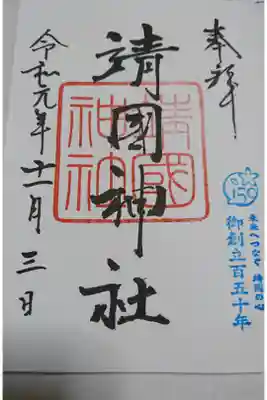 奉拝
靖國神社
靖國
神社
令和元年十一月三日
150
未来へつなぐ 靖国の心
御創立百五十年